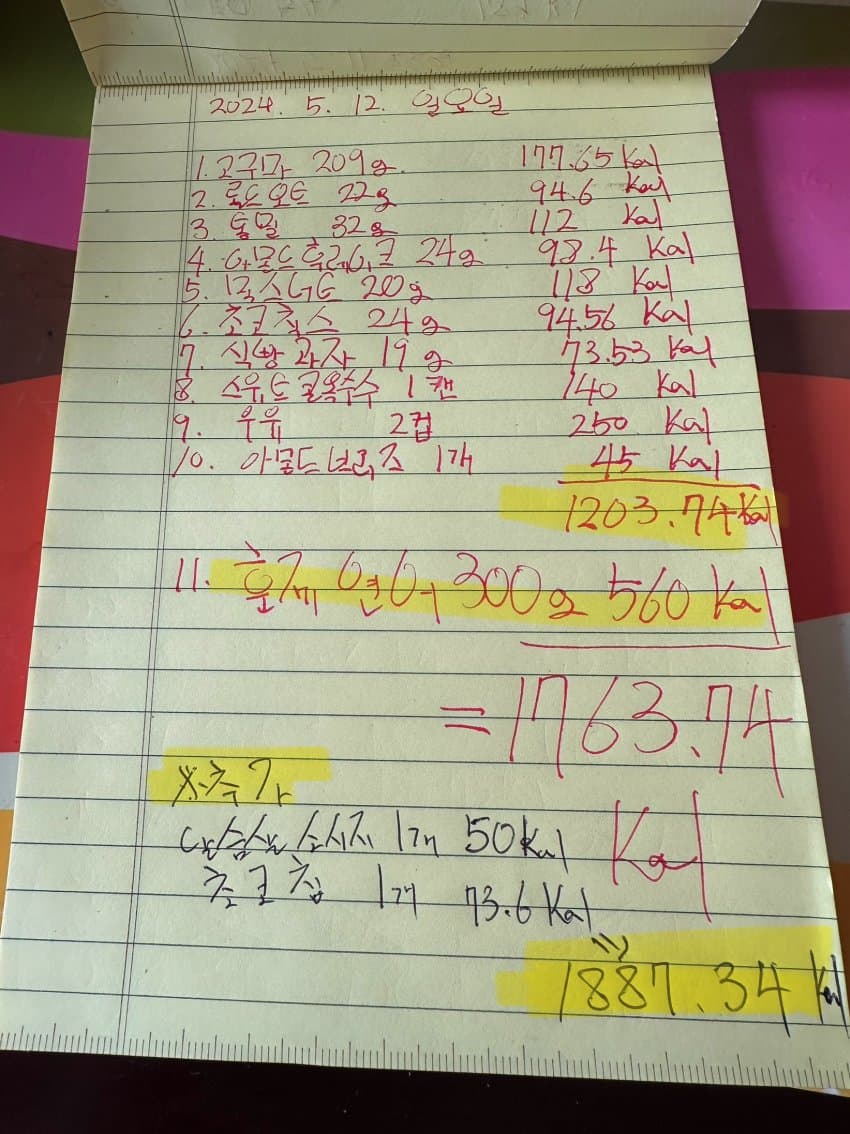 2024. 5. 12. 일요일
1. 고구마 209g. 177.65 Kal
2. 롤드오트 22g 94.6 Kal
3. 통밀 32g 112 Kal
4. 아몬드후레이크 24g 98.4 Kal
5. 믹스너트 20g 118 Kal
6. 초코칙스 24g 94.56 Kal
7. 식빵과자 19g 73.53 Kal
8. 스위트콘옥수수 1캔 140 Kal
9. 우유 2컵 250 Kal
10. 아몬드브리즈 1개 45 Kal
1203.74 Kal
11. 훈제연어 300g 560 Kal
= 1763.74
Kal
※추가
닭가슴살 소시지 1개 50 Kal
초코칩 1개 73.6 Kal
1887.34 Kal